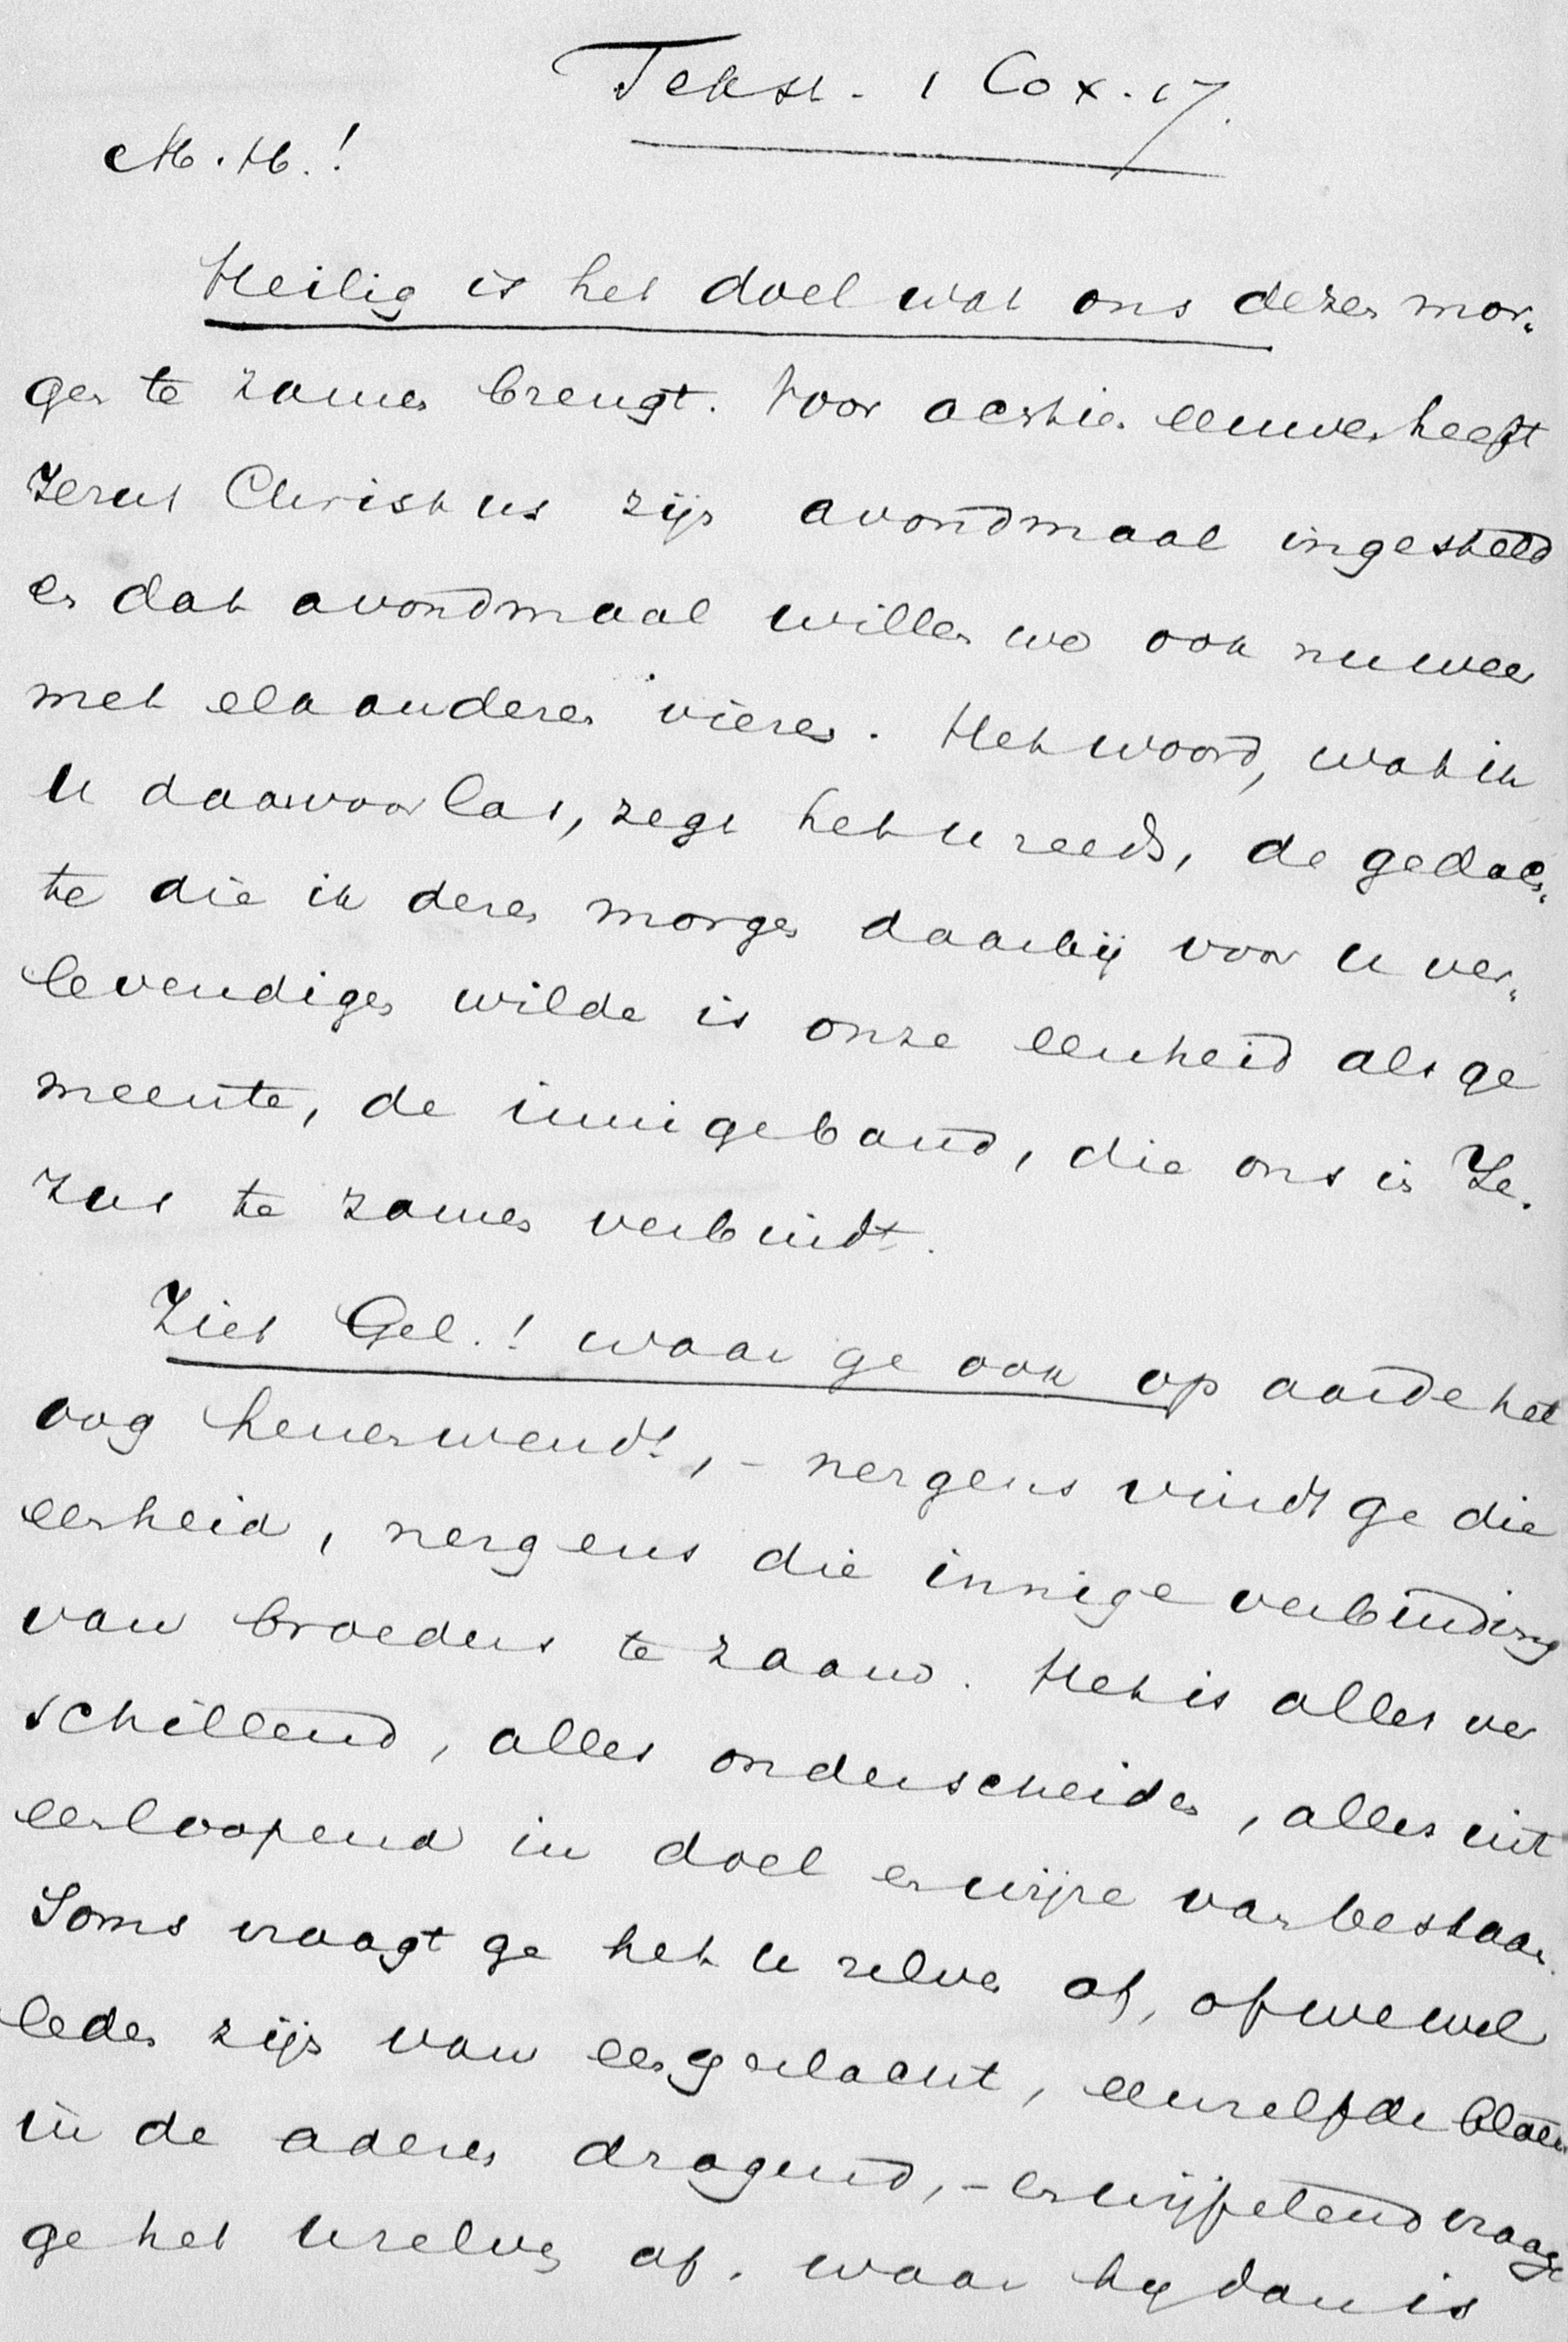 Tekst. 1 Cor X. 17.
M. H.!
Heilig is het doel wat ons dezen mor-
gen te zamen brengt. Voor achttien eeuwen heeft
Jezus Christus zijn avondmaal ingesteld
en dat avondmaal willen we ook nu weer
met elkanderen vieren. Het woord, wat ik
U daarvoor las, zegt het u reeds, de gedach-
te die ik dezen morgen daarbij voor U ver-
levendigen wilde is onze eenheid als ge
meente, de innige band, die ons in Je-
zus te zamen verbindt.
Ziet Gel.! waar ge ook op aarde het
oog henenwendt, - nergens vindt ge die
eenheid, nergens die innige verbinding
van broeders te zaam. Het is alles ver
schillend, alles onderscheiden, alles uit
eenloopend in doel en wijze van bestaan.
Soms vraagt ge het U zelven af, of we wel
leden zijn van een geslacht, eenzelfde bloed
in de aderen dragend, - en twijfelend vraagt
ge het Uzelven af, waar hij dan is